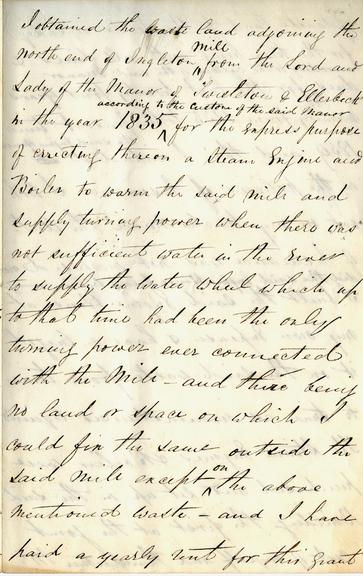 I obtained the waste land adjoining the
north end of Ingleton mill from the Lord and
Lady of the Manor of Twistleton & Ellerbeck
according to the Custom of the said Manor
in the year 1835 for the express purpose
of errecting thereon a Steam Engine and
Boiler to warm the said mill and
supply turning power when there was
not sufficient water in the river
to supply the water wheel which up
to that time had been the only
turning power ever connected
with the Mill – and there being
no land or space on which I
could fix the same outside the
said mill except on the above
mentioned waste – and I have
paid a yearly rent for this Grant